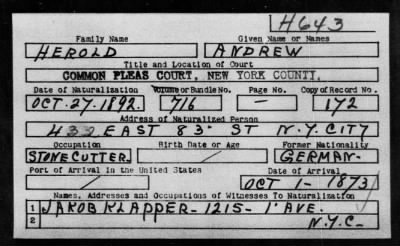 H643
Family Name Given Name or Names
HEROLD ANDREW
Title and Location of Court
COMMON PLEAS COURT, NEW YORK COUNTY.
Date of Naturalization Volume or Bundle No. Page No. Copy of Record No.
OCT. 27. 1892. 716 — 172
Address of Naturalized Person
432 EAST 83. ST N.Y. CITY
Occupation Birth Date or Age Former Nationality
STONE CUTTER. / GERMAN.
Port of Arrival in the United States Date of Arrival
/ OCT 1- 1873
Names, Addresses and Occupations of Witnesses To Naturalization
1 JAKOB KLAPPER- 1215- 1' AVE.
2 N.Y.C-